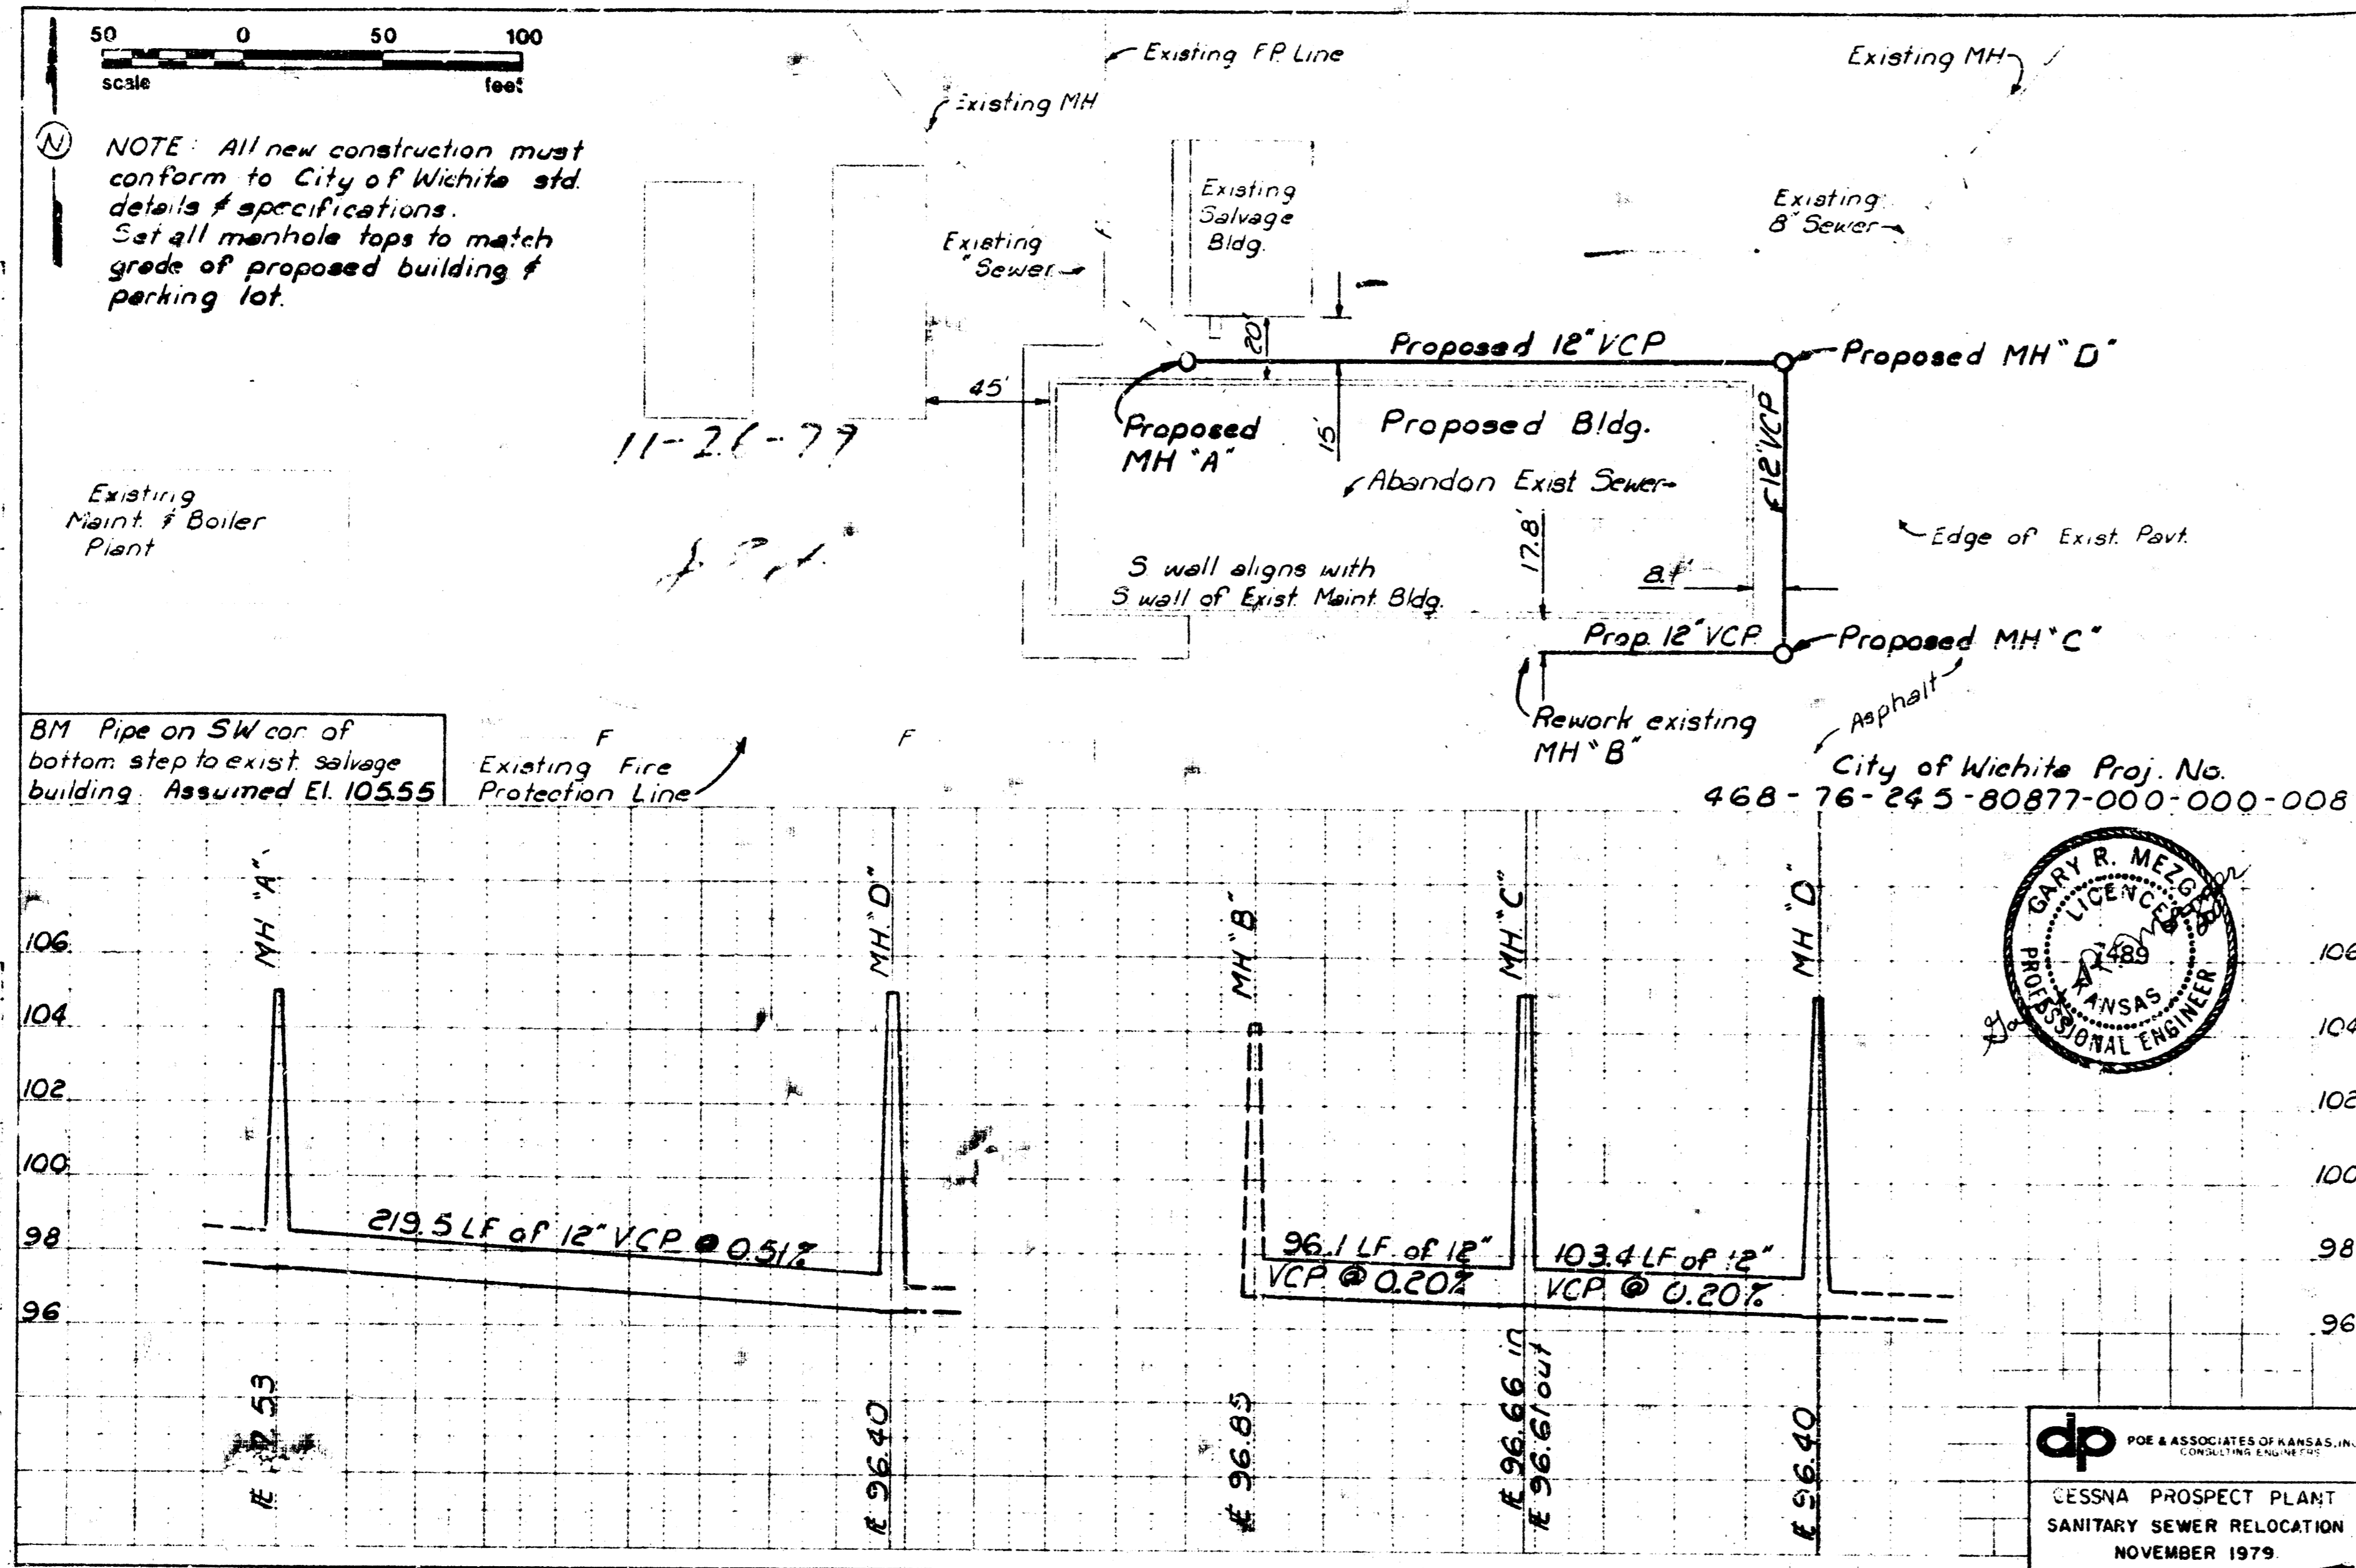 50 0 50 100
scale feet
N
NOTE: All new construction must
conform to City of Wichita std.
details & specifications.
Set all manhole tops to match
grade of proposed building &
parking lot.
Existing FP. Line
Existing MH
Existing MH
Existing
Salvage
Bldg.
Existing
8" Sewer
Existing
" Sewer
20'
Proposed 12" VCP
Proposed MH "D"
45'
Proposed
MH "A"
15'
Proposed Bldg.
12" VCP
11-26-79
Abandon Exist Sewer
Existing
Maint. & Boiler
Plant
17.8'
Edge of Exist. Pavt.
S wall aligns with
S wall of Exist. Maint. Bldg.
Prop. 12" VCP
Proposed MH "C"
Rework existing
MH "B"
Asphalt
BM Pipe on SW cor of
bottom step to exist. salvage
building. Assumed El. 105.55
F
F
F
Existing Fire
Protection Line
City of Wichita Proj. No.
468-76-245-80877-000-000-008
MH "A"
MH "D"
MH "B"
MH "C"
MH "D"
GARY R. MEZG
LICENCED
7489
KANSAS
PROFESSIONAL ENGINEER
106
104
102
100
98
96
106
104
102
100
98
96
219.5 LF of 12" VCP @ 0.51%
96.1 LF. of 12"
VCP @ 0.20%
103.4 LF of 12"
VCP @ 0.20%
53
96.40
96.85
96.66 in
96.61 out
96.40
dp
POE & ASSOCIATES OF KANSAS, INC
CONSULTING ENGINEERS
CESSNA PROSPECT PLANT
SANITARY SEWER RELOCATION
NOVEMBER 1979